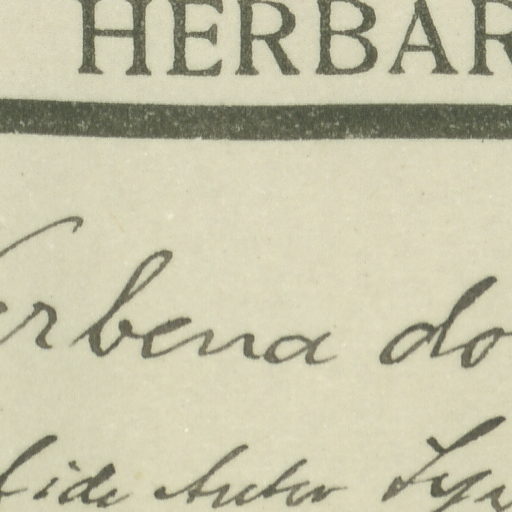 HERBAR
erbena do
fide Autor Ty